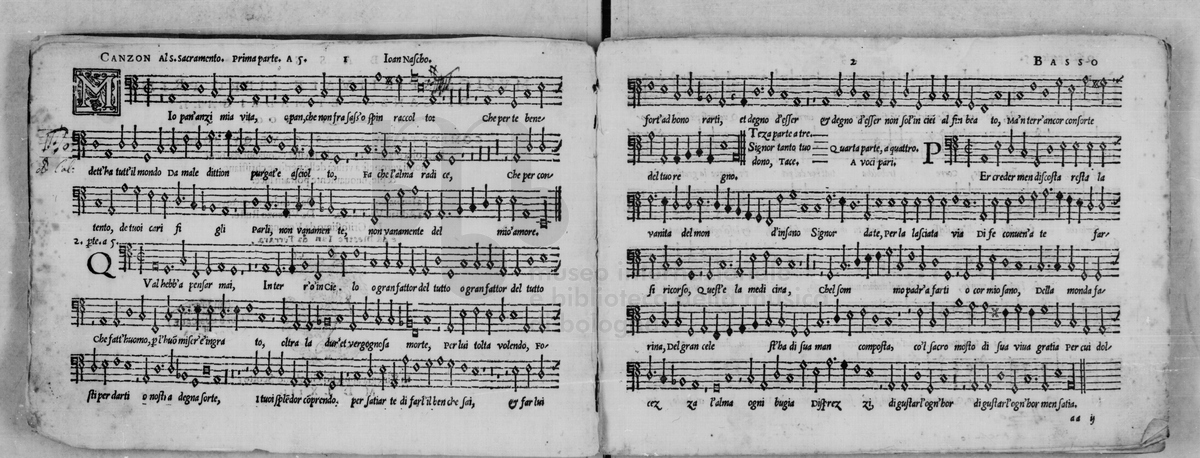 CANZON Al S. Sacramento. Prima parte. A 5. 1 Ioan Nascho.
M
Io pan'anzi mia vita, o pan, che non fra sass'o spin raccol to: Che per te bene-
dett'ha tutt'il mondo Da male dittion purgat'e asciol to, Fa che l'alma radi ce, Che per con-
tento, de tuoi cari fi gli Parli, non vanamen te, non vanamente del mio'amore.
2. pte. a 5.
Q
Val hebb'a pensar mai, In ter r'o in Cie. lo o gran fattor del tutto o gran fattor del tutto
Che fatt'huomo, p l'huõ miser'e ingra to, oltra la dur'et vergognosa morte, Per lui tolta volendo, Fo-
sti per darti o nosti a degna sorte, I tuoi splẽdor cõprendo. per satiar te di farl'il ben che sai, & far lui
2 BASSO
fort'ad hono rarti, et degno d'esser & degno d'esser non sol'in ciel al fin bea to, Ma'n terr'ancor consorte
Teza parte a tre.
Signor tanto tuo
dono, Tace.
Quarta parte, a quattro.
A voci pari.
P
del tuo re gno. Er creder men discosta resta la
vanita del mon d'insano Signor date, Per la lasciata via Di fe conuen'a te far-
si ricorso, Quest'e la medi cina, Ch'el som mo padr'a farti o cor mio sano, Della monda fa-
rina, Del gran cele st'ha di sua man composta, co'l sacro mosto di sua viua gratia Per cui dol-
cez za l'alma ogni bugia Disprez zi, di gustar l'ogn'hor di gustar l'ogn'hor men satia.
aa ij
museo in
e biblioteca della musica
bologna